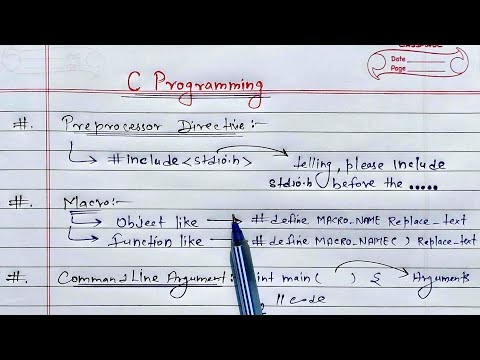 CLASSMATE
Date
Page
C Programming
#. Preprocessor Directive :-
→ #include <stdio.h> telling, please include
stdio.h before the .....
#. Macro:-
→ Object like → # define MACRO_NAME Replace_text
→ function like → # define MACRO_NAME( ) Replace_text
#. Command Line Argument : int main( ) { Arguments
// code